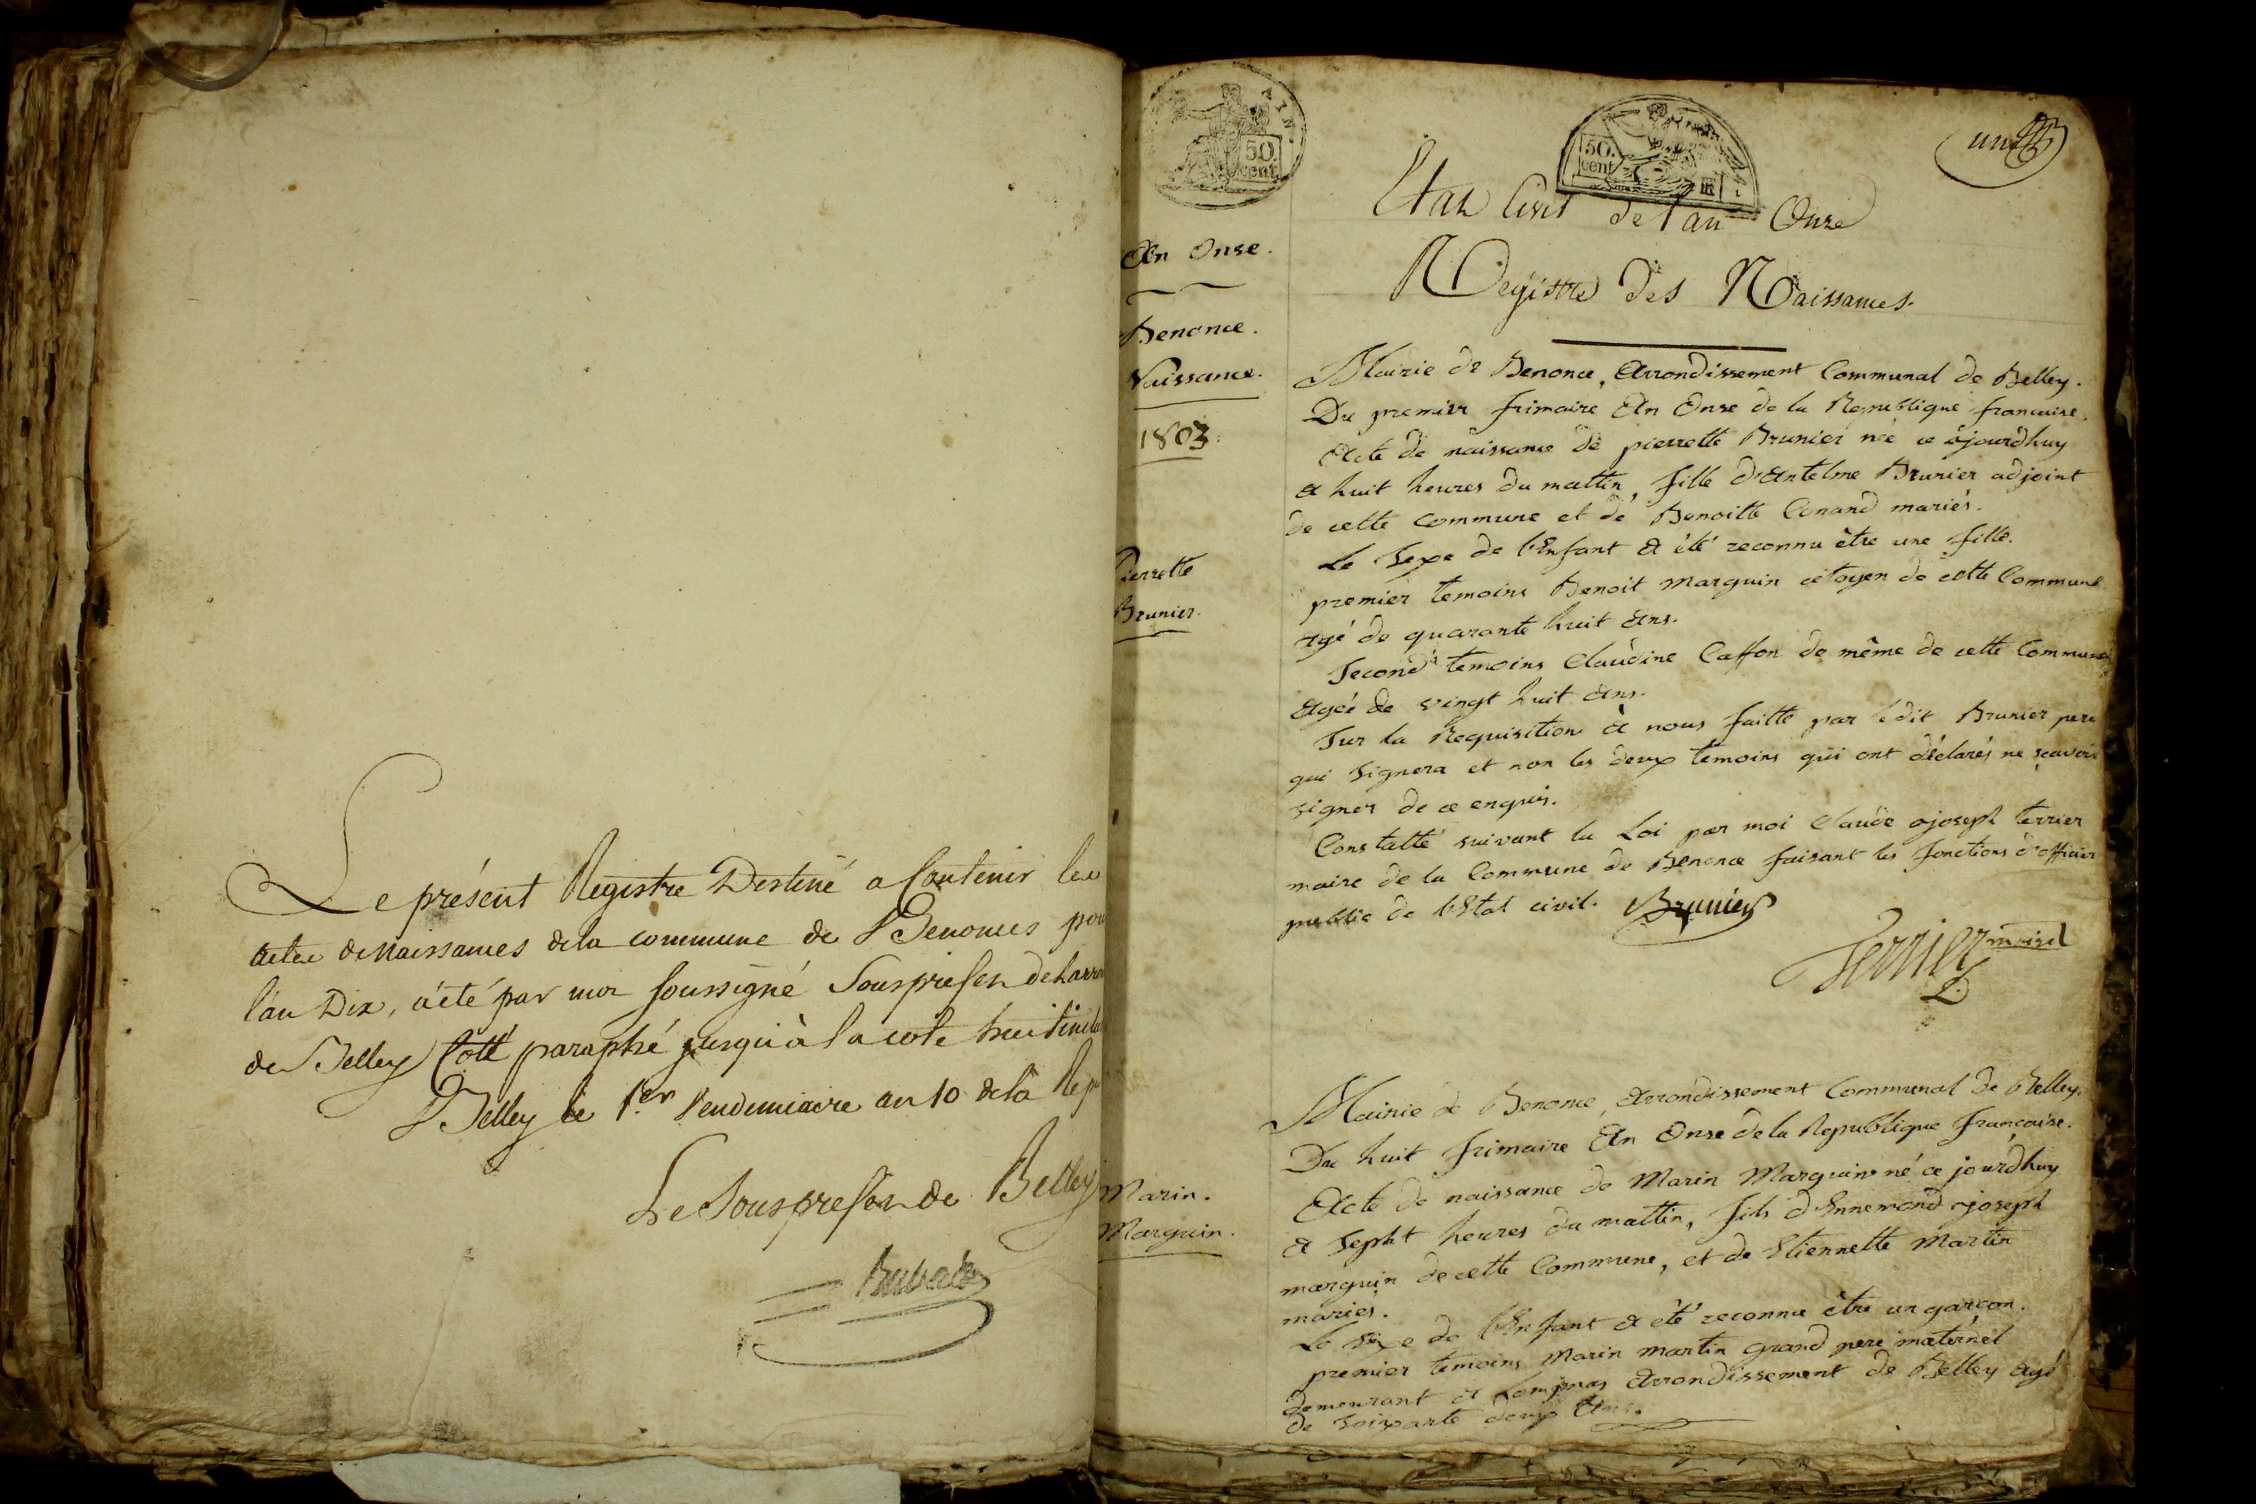 Le présent Registre Destiné a Contenir les
actes de Naissances de la commune de Benonces pour
l'an Dix, a été par moi soussigné Sousprefet de l'arr
de Belley Cotté paraphé jusqu'à la cote huit inclu
Belley le 1er Vendemiaire an 10 de la Rep
Le Sousprefet de Belley
AIN.
50.
cent.
An Onse.
Benonce.
Naissance.
1803.
Pierrette
Brunier.
Marin.
Marguin.
50.
cent
un
Etat Civil de l'an Onze
Registre des Naissances.
Mairie de Benonce, Arrondissement Communal de Belley.
Du premier frimaire An Onse de la Republique francaise.
Acte de naissance de pierrette Brunier née ce ojourdhuy
a huit heures du mattin, fille d'Antelme Brunier adjoint
de cette commune et de Benoitte Conand mariés.
Le Sexe de l'Enfant a été reconnu être une fille.
premier temoins Benoit Marguin citoyen de cette Commune
agé de quarante huit ans.
Second temoins Claudine Caffon de même de cette Commune
agée de vingt huit ans.
Sur la Requisition a nous faitte par ledit Brunier pere
qui signera et non les deux temoins qui ont déclarés ne scavoir
signer de ce enquis.
Constatté suivant la Loi par moi Claude ojoseph terrier
maire de la Commune de Benonce faisant les fonctions d'officier
public de l'Etat civil. Brunier
Terrier maire
Mairie de Benonce, Arrondissement Communal de Belley.
Du huit frimaire An Onse de la Republique francaise.
Acte de naissance de Marin Marguin né ce jourdhuy
a Sepht heures du mattin, fils d'Ennemond ojoseph
marguin de cette Commune, et de Etiennette Martin
mariés.
Le Sexe de l'Enfant a été reconnu être un garcon.
premier temoins Marin martin grand pere maternel
demeurant a Lompnas Arrondissement de Belley agé
de soixante deux Ans.